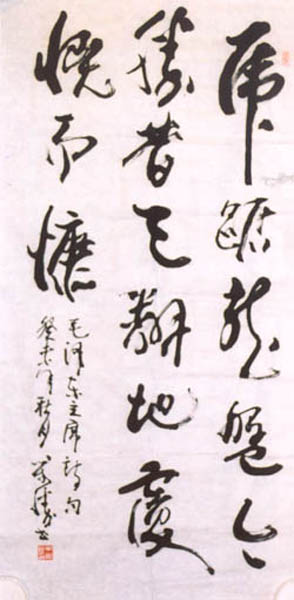 虎踞龙盘今
胜昔天翻地覆
慨而慷
毛泽东主席诗句
癸未年秋月